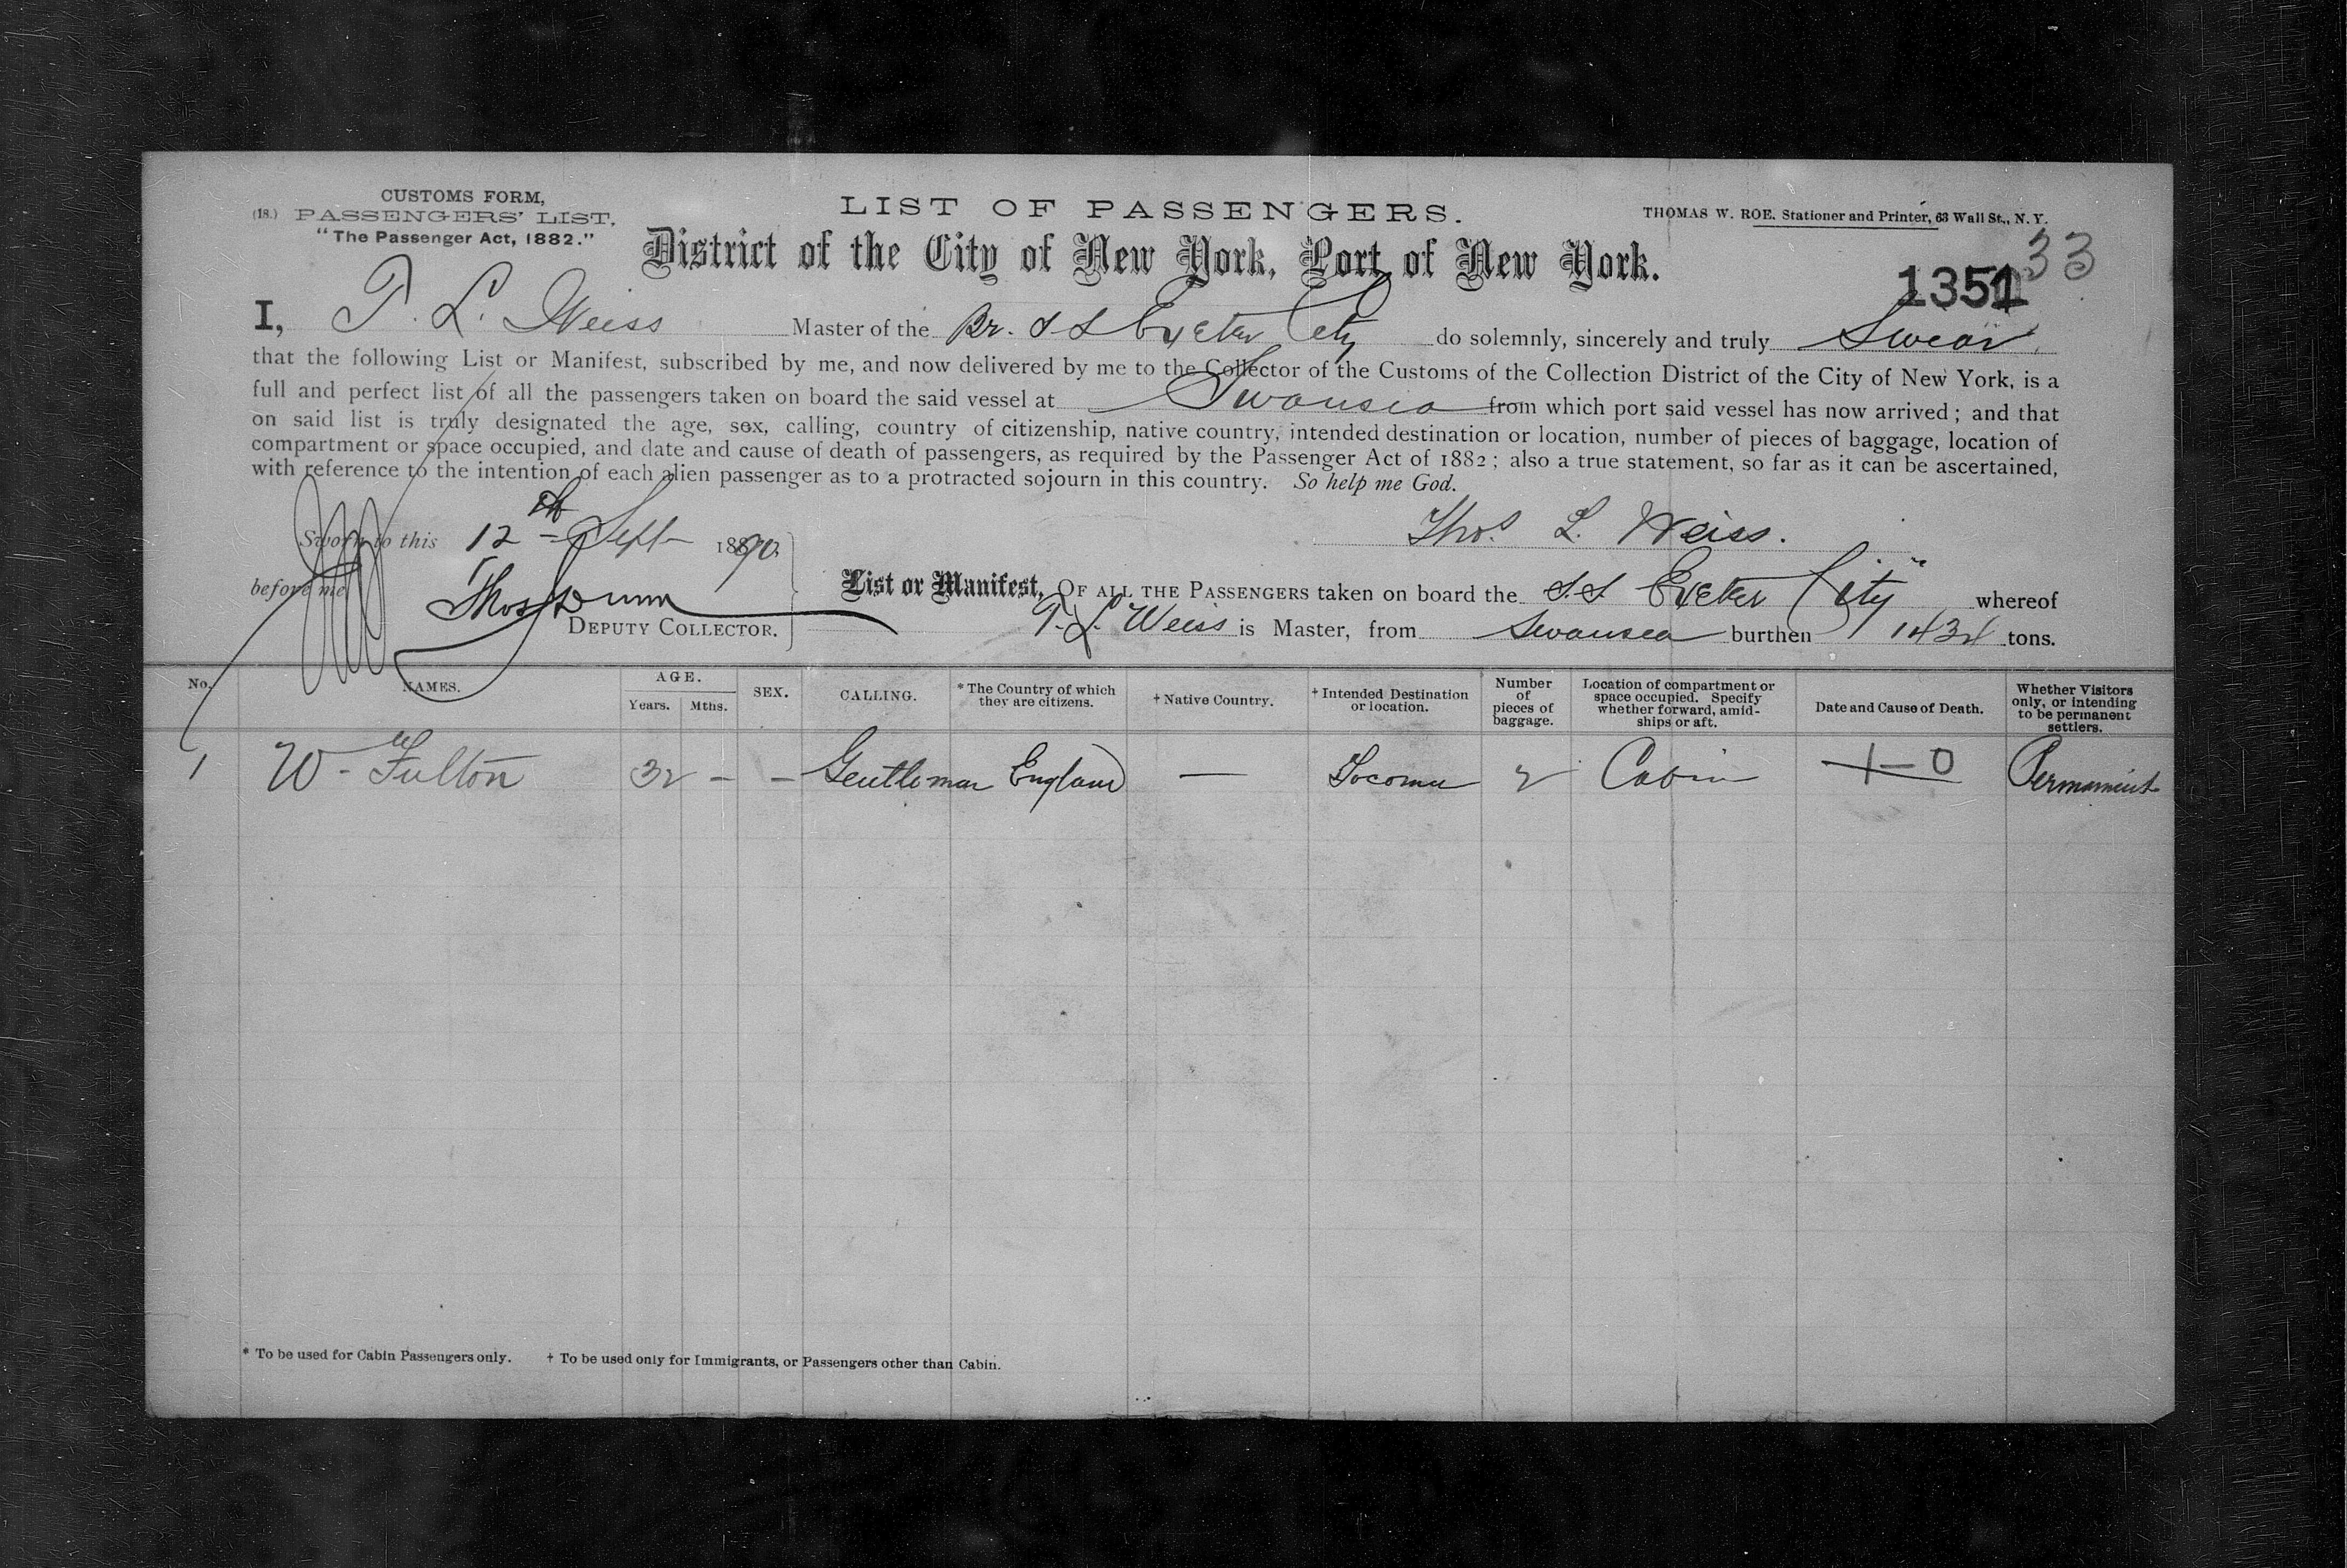 CUSTOMS FORM,
(18.) PASSENGERS' LIST,
"The Passenger Act, 1882."
LIST OF PASSENGERS.
THOMAS W. ROE, Stationer and Printer, 63 Wall St., N. Y.
District of the City of New York, Port of New York.
33
1351
I, T. L. Weiss Master of the Br. S S Exeter City do solemnly, sincerely and truly Swear
that the following List or Manifest, subscribed by me, and now delivered by me to the Collector of the Customs of the Collection District of the City of New York, is a
full and perfect list of all the passengers taken on board the said vessel at Swansea from which port said vessel has now arrived; and that
on said list is truly designated the age, sex, calling, country of citizenship, native country, intended destination or location, number of pieces of baggage, location of
compartment or space occupied, and date and cause of death of passengers, as required by the Passenger Act of 1882; also a true statement, so far as it can be ascertained,
with reference to the intention of each alien passenger as to a protracted sojourn in this country. So help me God.
Sworn to this 12th Sept 1890.
Thos. L. Weiss.
before me
Thos Dunn
DEPUTY COLLECTOR.
List or Manifest, OF ALL THE PASSENGERS taken on board the S.S Exeter City whereof
T. L. Weiss is Master, from Swansea burthen 1434 tons.
No. NAMES. AGE. Years. Mths. SEX. CALLING. * The Country of which they are citizens. † Native Country. † Intended Destination or location. Number of pieces of baggage. Location of compartment or space occupied. Specify whether forward, amidships or aft. Date and Cause of Death. Whether Visitors only, or intending to be permanent settlers.
1 W. Fulton 32 – – Gentleman England — Tocoma 2 Cabin 1–0 Permanint
* To be used for Cabin Passengers only. † To be used only for Immigrants, or Passengers other than Cabin.